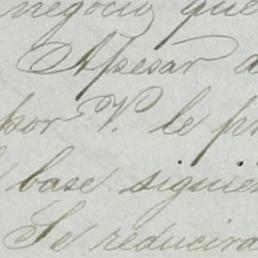 negocio, que
Apesar d
por V. le pr
base siguien
Se reducira